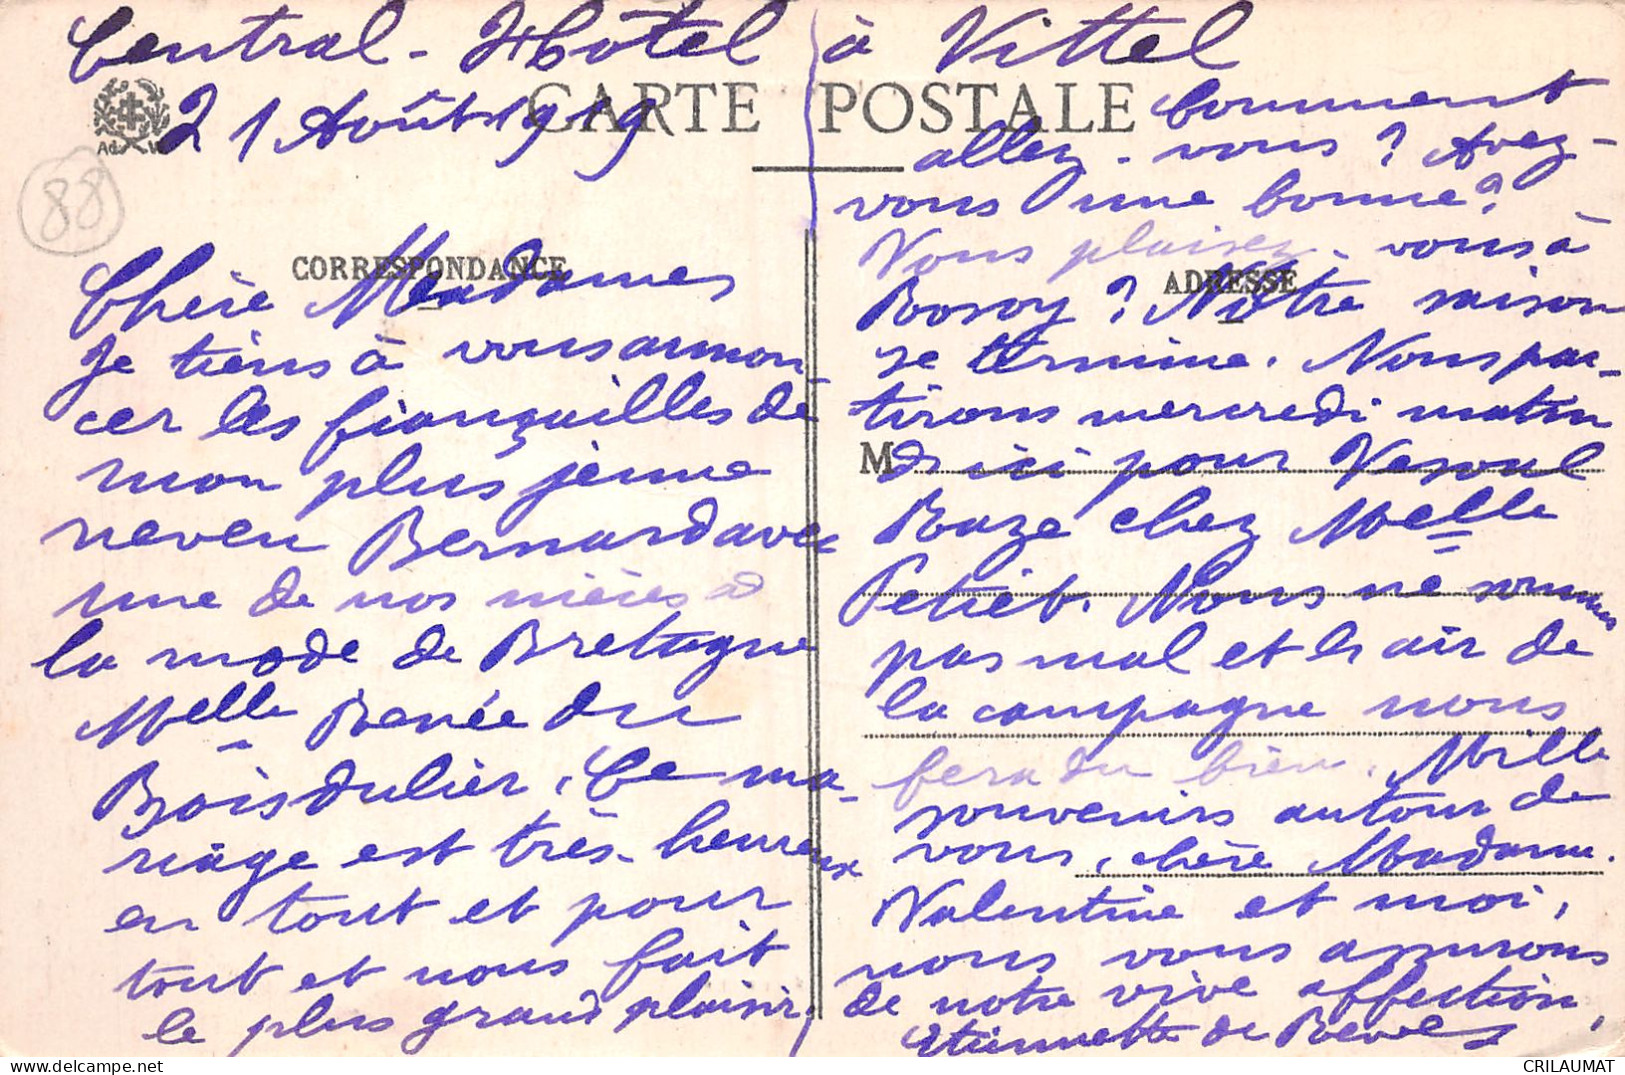 Central-Hôtel à Vittel
21 Août 1919
CARTE POSTALE
88
CORRESPONDANCE
Chère Madame
Je tiens à vous annon-
cer les fiançailles de
mon plus jeune
neveu Bernard avec
une de nos nièces à
la mode de Bretagne
Melle Renée du
Boisdulier. Ce ma-
riage est très-heureux
en tout et pour
tout et nous fait
le plus grand plaisir.
Comment
allez-vous ? Avez-
vous une bonne ?
Vous plaisez-vous à
ADRESSE
? Nôtre saison
se termine. Nous par-
tirons mercredi matin
M
d'ici pour Vesoul
chez Melle
Petiet. Nous ne sommes
pas mal et le air de
la campagne nous
fera du bien. Mille
souvenirs autour de
vous, chère Madame.
Valentine et moi,
nous vous assurons
de notre vive affection,
Etiennette de
CRILAUMAT